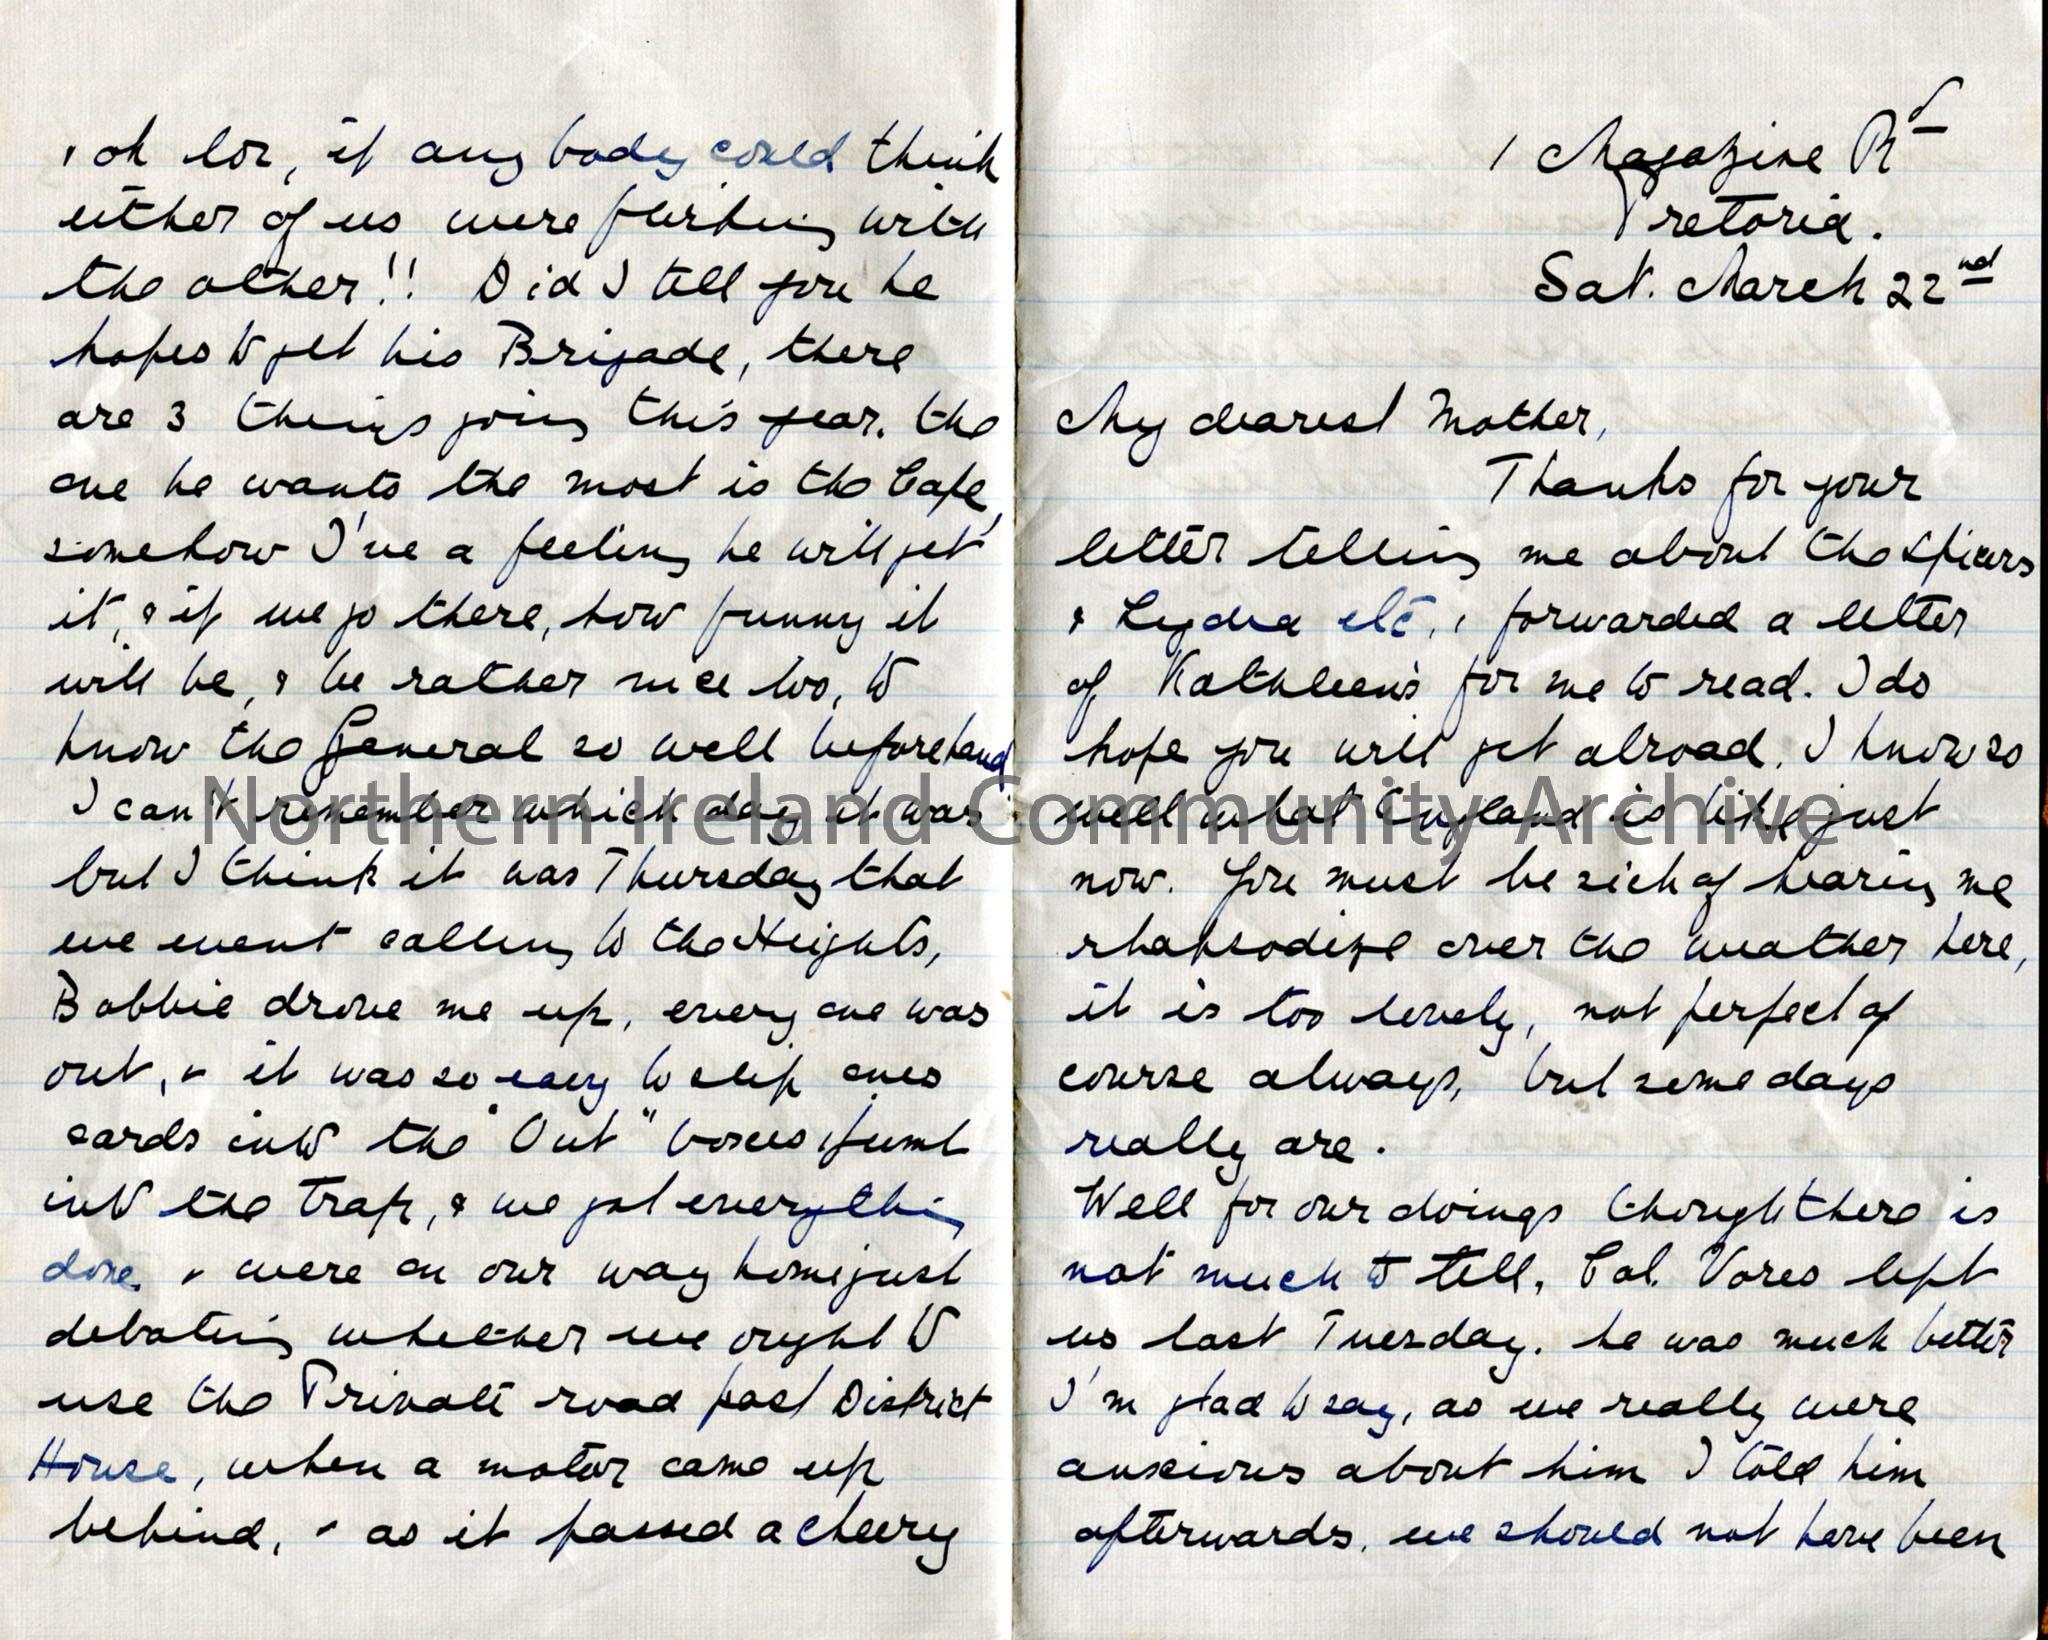 & oh lor, if any body could think
either of us were flirting with
the other!! Did I tell you he
hopes to get his Brigade, there
are 3 things going this year. the
one he wants the most is the Cape,
somehow I've a feeling he will get
it, & if we go there, how funny it
will be, & be rather nice too, to
know the General so well beforehand
I can't remember which day it was
but I think it was Thursday that
we went calling to the Heights,
Bobbie drove me up, every one was
out, & it was so easy to slip ones
cards into the "Out" boxes & jump
into the trap, & we got everything
done, & were on our way home just
debating whether we ought to
use the Private road past District
House, when a motor came up
behind, & as it passed a cheery
1 Magazine Rd
Pretoria.
Sat. March 22nd
My dearest Mother,
Thanks for your
letter telling me about the Spicers
& Lydia etc, & forwarded a letter
of Kathleen's for me to read. I do
hope you will get abroad. I know so
well what England is like just
now. You must be sick of hearing me
rhapsodize over the weather here,
it is too lovely, not perfect of
course always, but some days
really are.
Well for our doings though there is
not much to tell, Col. Vores left
us last Tuesday. he was much better
I'm glad to say, as we really were
anxious about him I told him
afterwards, we should not have been
Northern Ireland Community Archive